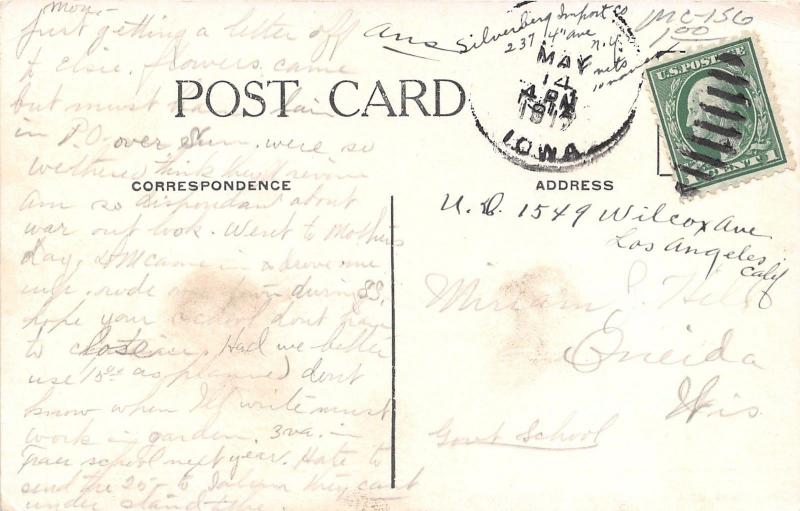 Mon.-
Just getting a letter off
to Elsie. flowers came
but must have
in P.O. over Sun. were so
withered think they'd revive
Am so dispondant about
war out look. Went to Mothers
day, came in & drove me
rode down during SS.
hope your school dont have
to close. Had we better
use 15 00 as planned) dont
know when I'll write must
work in garden. 3 va. in
Traer school next year. Hate to
send the 25- to they cant
under stand
Ans
Silverberg Import Co
237 4" Ave
N.Y.
nets
MC-156
1.00
POST CARD
MAY
14
4 PM
IOWA
U.S. POSTAGE
1 CENT 1
CORRESPONDENCE
ADDRESS
U.D. 1549 Wilcox Ave
Los Angeles
Calif
Miriam J.
Oneida
Wis
Govt School